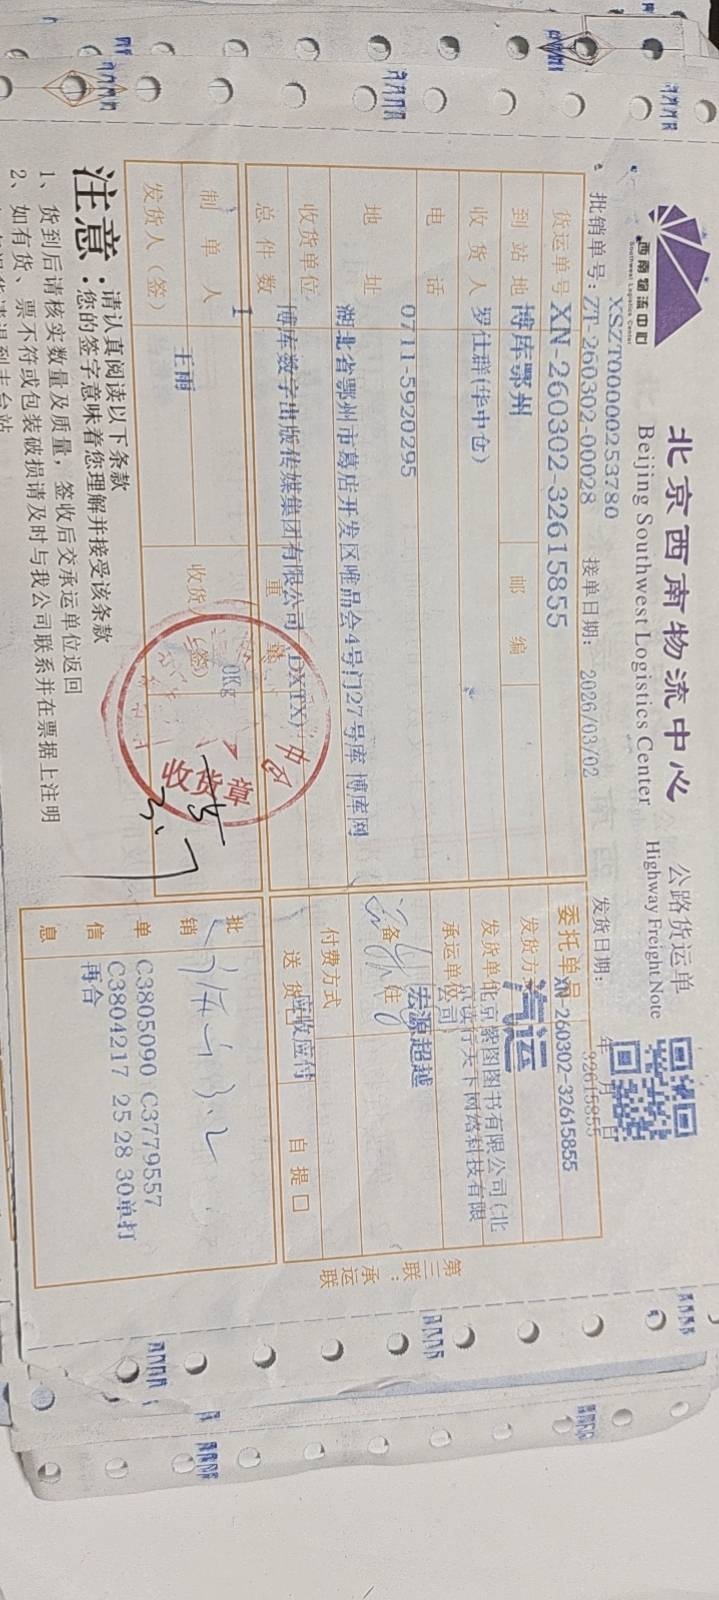 西南物流中心
Southwest Logistics Center
北京西南物流中心
Beijing Southwest Logistics Center
公路货运单
Highway Freight Note
XSZT00000253780
批销单号: ZT-260302-00028
接单日期: 2026/03/02
发货日期: 年 月 日
货运单号 XN-260302-32615855
到站地 博库鄂州
邮编
收货人 罗仕群(华中仓)
电话 0711-5920295
地址 湖北省鄂州市葛店开发区唯品会4号门27号库 博库网
收货单位 博库数字出版传媒集团有限公司 DXTX)
总件数 1
重量 0Kg
制单人 王雨
收货人(签)
发货人(签)
收货章
委托单号 XN-260302-32615855
32615855
发货方式 汽运
发货单位 北京紫图图书有限公司(北京读行天下网络科技有限公司)
承运单位 宏源超越
备注
付费方式 应收应付
送货
自提口
批销单信息
C3805090 C3779557
C3804217 25 28 30单打
再合
第三联:承运联
注意:
请认真阅读以下条款
您的签字意味着您理解并接受该条款
1、货到后请核实数量及质量,签收后交承运单位返回
2、如有货、票不符或包装破损请及时与我公司联系并在票据上注明